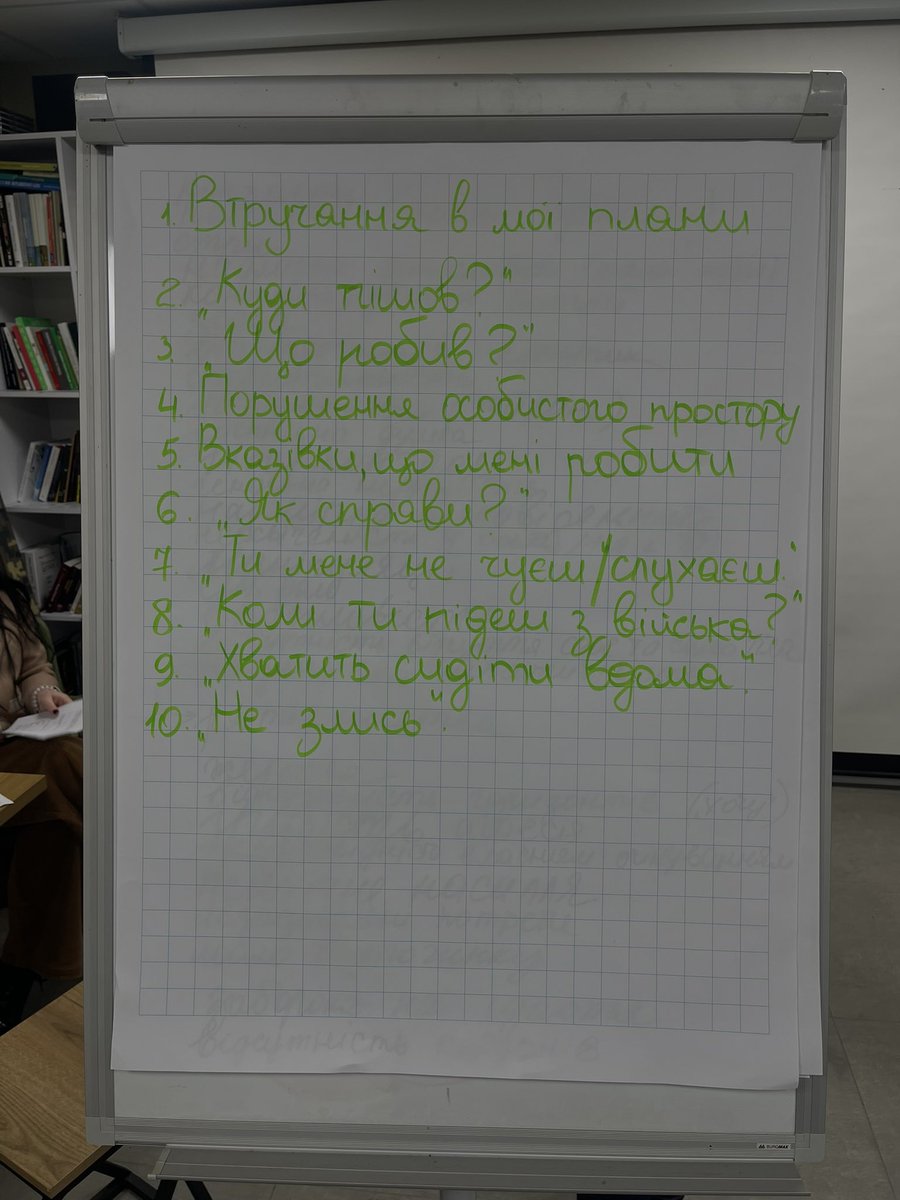 1. Втручання в мої плани
2. „Куди пішов?"
3. „Що робив?"
4. Порушення особистого простору
5. Вказівки, що мені робити
6. „Як справи?"
7. „Ти мене не чуєш/слухаєш".
8. „Коли ти підеш з війська?"
9. „Хватить сидіти вдома".
10. „Не злись".
BUROMAX